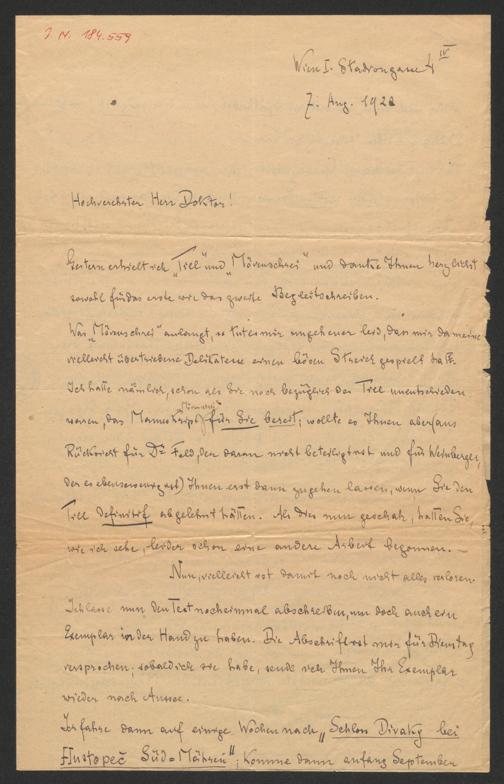 J. N. 184.559
Wien I. Stadiongasse 4 IV
7. Aug. 1922
Hochverehrter Herr Doktor!
Gestern erhielt ich „Tyll" und „Mövenschrei" und danke Ihnen herzlichst
sowohl für das erste wie das zweite Begleitschreiben.
Was „Mövenschrei" anlangt, so tut es mir ungeheuer leid, dass mir da meine
vielleicht übertriebene Delikatesse einen bösen Streich gespielt hat.
Ich hatte nämlich, schon als Sie noch bezüglich des Tyll unentschieden
waren, das Manuskript (Mövenschrei) für Sie bereit, wollte es Ihnen aber (aus
Rücksicht für Dr Feld, der daran nicht beteiligt ist und für Weinberger,
der es ebensowenig ist) Ihnen erst dann zugehen lassen, wenn Sie den
Tyll definitif abgelehnt hätten. Als dies nun geschah, hatten Sie,
wie ich sehe, leider schon eine andere Arbeit begonnen. –
Nun, vielleicht ist damit noch nicht alles verloren.
Ich lasse nun den Text nocheinmal abschreiben, um doch auch ein
Exemplar in der Hand zu haben. Die Abschrift ist mir für Dienstag
versprochen; sobald ich sie habe, sende ich Ihnen Ihr Exemplar
wieder nach Aussee.
Ich fahre dann auf einige Wochen nach „Schloss Divaky bei
Hustopeč Süd-Mähren"; komme dann anfang September